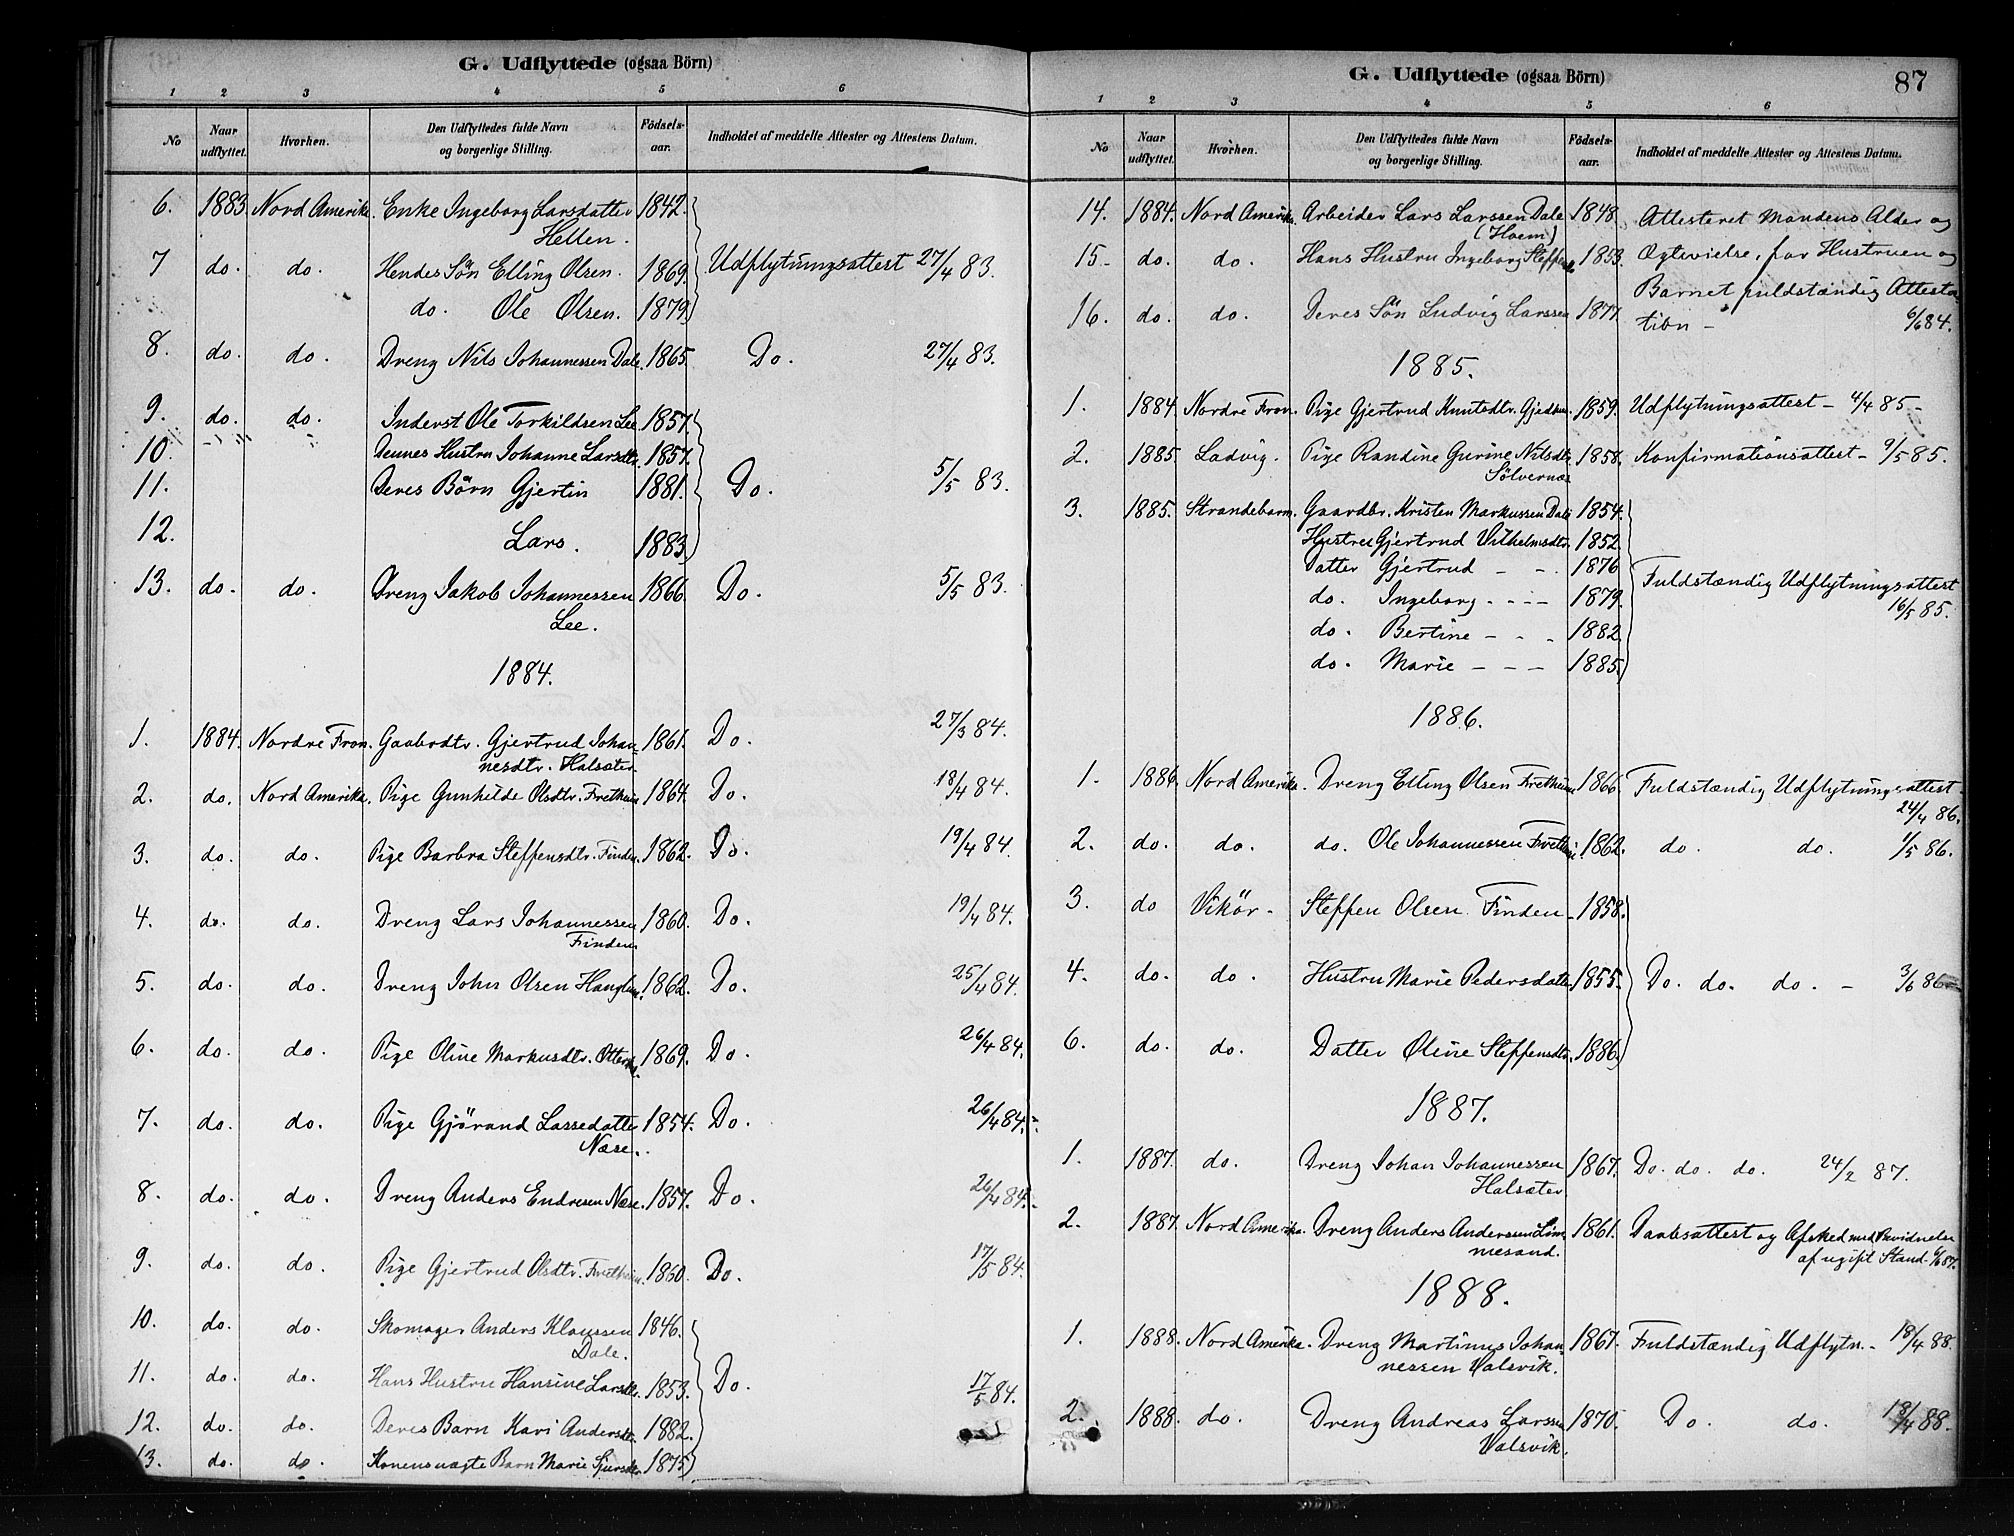 G. Udflyttede (ogsaa Börn)
1 2 3 4 5 6
No Naar udflyttet. Hvorhen. Den Udflyttedes fulde Navn og borgerlige Stilling. Födsels-aar. Indholdet af meddelte Attester og Attestens Datum.
6. 1883 Nord Amerika. Enke Ingeborg Larsdatter 1842.
Hellen.
7 do. do. Hendes Sön Elling Olsen. 1869. Udflytningsattest 27/4 83.
do. Ole Olsen. 1879.
8. do. do. Dreng Nils Johannessen Dale. 1865. Do. 27/4 83.
9. do. do. Inderst Ole Torkildsen Lee 1857.
10. Dennes Hustru Johanne Larsdtr. 1857.
11. Deres Börn Gjertin 1881. Do. 5/5 83.
12. Lars. 1883.
13. do. do. Dreng Jakob Johannessen 1866. Do. 5/5 83.
Lee.
1884.
1. 1884. Nordre Fron. Gjertrud Johan- 1861. Do. 27/3 84.
nesdtr. Halsæter.
2. do. Nord Amerika. Pige Gunhilde Olsdtr. Fretheim 1864. Do. 18/4 84.
3. do. do. Pige Barbra Steffensdtr. Finden. 1862. Do. 19/4 84.
4. do. do. Dreng Lars Johannessen 1860. Do. 19/4 84.
Finden.
5. do. do. Dreng John Olsen 1862. Do. 25/4 84.
6. do. do. Pige Oline Markusdtr. 1869. Do. 26/4 84.
7. do. do. Pige Gjörand Lassedatter 1854. Do. 26/4 84.
Næse.
8. do. do. Dreng Anders Endresen Næse. 1857. Do. 26/4 84.
9. do. do. Pige Gjertrud Olsdtr. Fretheim. 1860. Do. 17/5 84.
10. do. do. Skomager Anders Klaussen 1846.
Dale.
11. do. do. Hans Hustru Hansine Larsdtr. 1853. Do. 17/5 84.
12. do. do. Deres Barn Kari Andersdtr. 1882.
13. do. do. Konens uægte Barn Marie Sjursdtr. 1875
G. Udflyttede (ogsaa Börn) 87
1 2 3 4 5 6
No Naar udflyttet. Hvorhen. Den Udflyttedes fulde Navn og borgerlige Stilling. Födsels-aar. Indholdet af meddelte Attester og Attestens Datum.
14. 1884. Nord Amerika. Arbeider Lars Larssen Dale 1848. Attesteret Mandens Alder og
(Hoem)
15. do. do. Hans Hustru Ingeborg 1853. Ægtevielse, for Hustruen og
Barnet fuldstændig Attesta-
16. do. do. Deres Sön Ludvig Larssen 1877. tion - 6/6 84.
1885.
1. 1884. Nordre Fron. Pige Gjertrud Knutsdtr. 1859. Udflytningsattest - 4/4 85 -
2. 1885. Ladvig. Pige Randine Gurine Nilsdtr. 1858. Konfirmationsattest - 9/5 85.
Sölvernæs
3. 1885. Strandebarm. Gaardbr. Kristen Markussen Dale 1854.
Hustru Gjertrud Vilhelmsdtr. 1852.
Datter Gjertrud - - 1876
do. Ingeborg - - - 1879. Fuldstændig Udflytningsattest
16/5 85.
do. Bertine - - - 1882
do. Marie - - - 1885.
1886.
1. 1886. Nord Amerika. Dreng Elling Olsen Fretheim 1866. Fuldstændig Udflytningsattest.
24/4 86.
2. do. do. do. Ole Johannessen Fretheim 1862. do. do. 1/5 86.
3. do Vikör - Steffen Olsen Finden - 1858.
4. do. do. Hustru Marie Pedersdatter 1855. Do. do. do. - 3/6 86.
6. do. do. Datter Oline Steffensdtr. 1886.
1887.
1. 1887. do. Dreng Johan Johannessen 1867. Do. do. do. 24/2 87.
Halsæter
2. 1887. Nord Amerika. Dreng Anders Anderssen Lim- 1861. Daabsattest og Afsked med Bevidnelse
mesand. af ugift Stand.
1888.
1. 1888. Nord Amerika. Dreng Martinus Johan- 1867. Fuldstændig Udflytn. - 18/4 88.
nessen Valsvik.
2. 1888. do. Dreng Andreas Larssen 1870. Do. do. 18/4 88.
Valsvik.